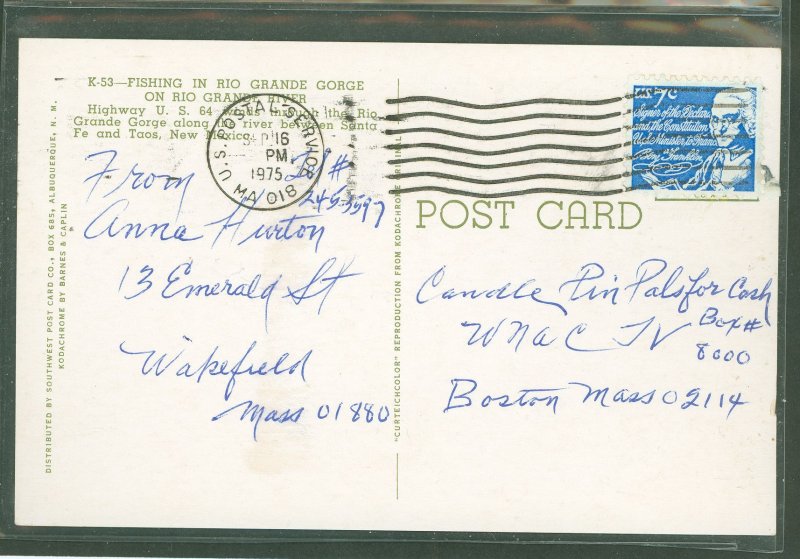 K-53—FISHING IN RIO GRANDE GORGE
ON RIO GRANDE RIVER
Highway U. S. 64 winds through the Rio
Grande Gorge along the river between Santa
Fe and Taos, New Mexico.
U.S. POSTAL SERVICE
SEP 16
PM
1975
MA 018
US 7c
Signer of the Declara
and the Constitution
U.S. Minister to France
Benj Franklin
From Tel #
245 3597
Anna Hurton
13 Emerald St
Wakefield
Mass 01880
POST CARD
Candle Pin Pals for Cash
WNAC TV Box #
8000
Boston Mass 02114
DISTRIBUTED BY SOUTHWEST POST CARD CO., BOX 685, ALBUQUERQUE, N. M.
KODACHROME BY BARNES & CAPLIN
"CURTEICHCOLOR" REPRODUCTION FROM KODACHROME ORIGINAL